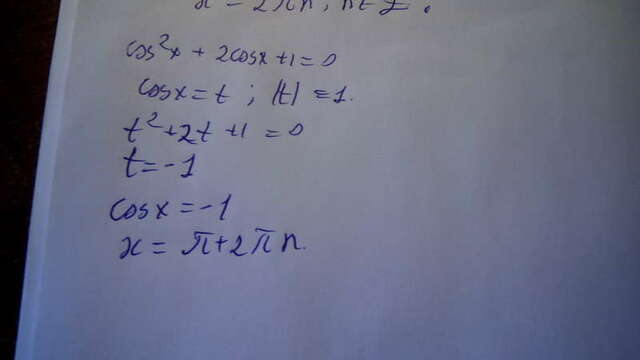 x = 2πn, n ∈ Z.
cos²x + 2cosx + 1 = 0
cosx = t ; |t| = 1.
t² + 2t + 1 = 0
t = -1
cosx = -1
x = π + 2πn.